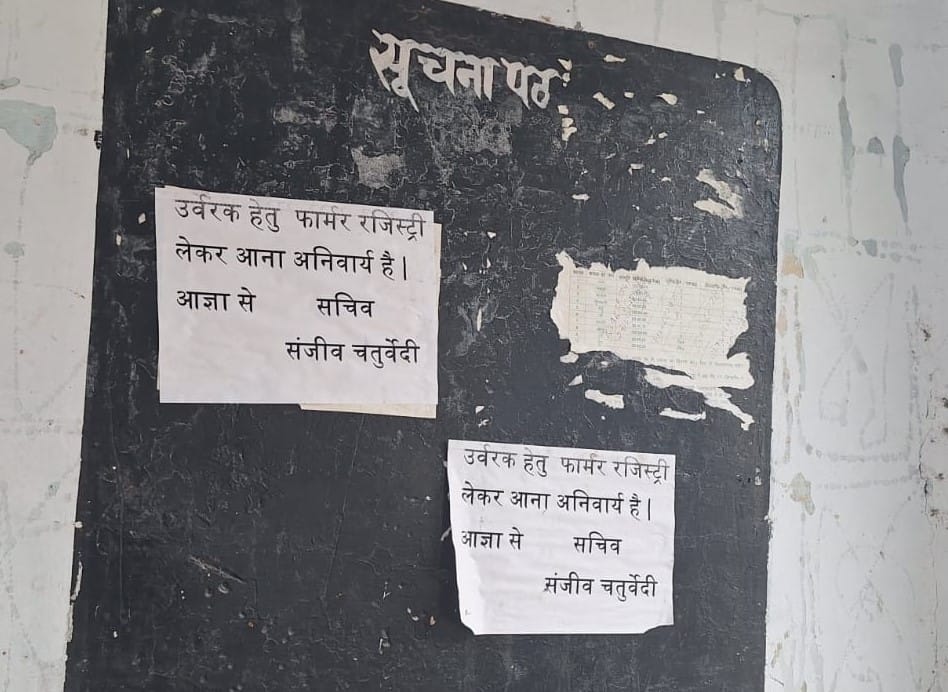 सूचना पट
उर्वरक हेतु फार्मर रजिस्ट्री
लेकर आना अनिवार्य है।
आज्ञा से सचिव
संजीव चतुर्वेदी
उर्वरक हेतु फार्मर रजिस्ट्री
लेकर आना अनिवार्य है।
आज्ञा से सचिव
संजीव चतुर्वेदी